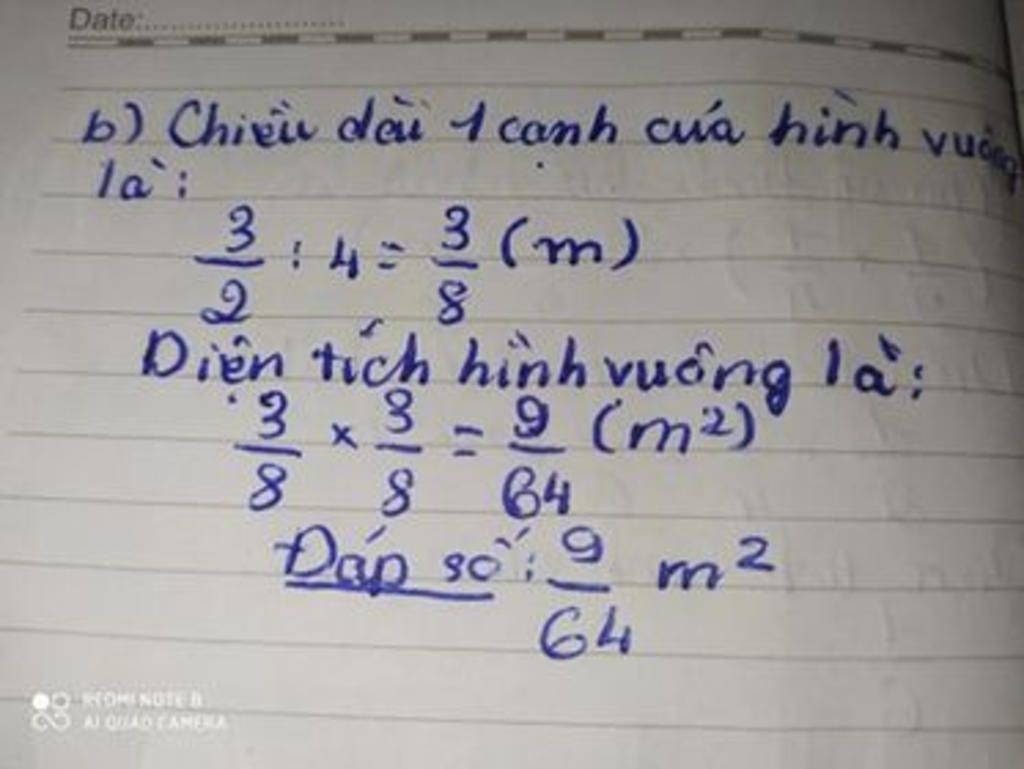 Date:....................
b) Chiều dài 1 cạnh cuả hình vuông
là:
3/2 : 4 = 3/8 (m)
Diện tích hình vuông là:
3/8 × 3/8 = 9/64 (m²)
Đáp số: 9/64 m²
REDMI NOTE 8
AI QUAD CAMERA